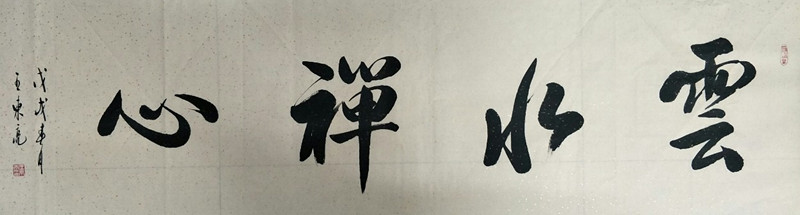 雲水禪心
戊戌春月
王東亮